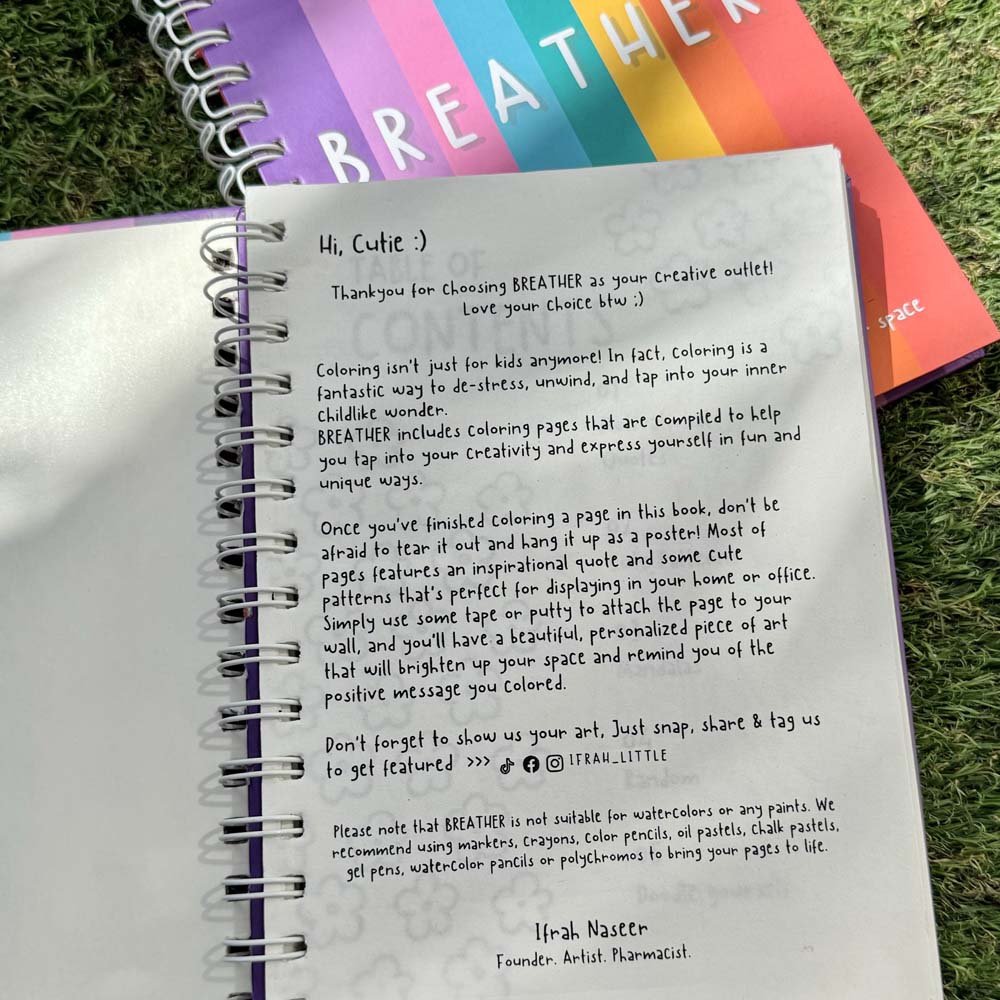 BREATHER
space
Hi, Cutie :)
Thankyou for choosing BREATHER as your creative outlet!
Love your choice btw ;)
Coloring isn't just for kids anymore! In fact, coloring is a
fantastic way to de-stress, unwind, and tap into your inner
childlike wonder.
BREATHER includes coloring pages that are compiled to help
you tap into your creativity and express yourself in fun and
unique ways.
Once you've finished coloring a page in this book, don't be
afraid to tear it out and hang it up as a poster! Most of
pages features an inspirational quote and some cute
patterns that's perfect for displaying in your home or office.
Simply use some tape or putty to attach the page to your
wall, and you'll have a beautiful, personalized piece of art
that will brighten up your space and remind you of the
positive message you colored.
Don't forget to show us your art, Just snap, share & tag us
to get featured >>> IFRAH_LITTLE
Please note that BREATHER is not suitable for watercolors or any paints. We
recommend using markers, crayons, color pencils, oil pastels, chalk pastels,
gel pens, watercolor pancils or polychromos to bring your pages to life.
Ifrah Naseer
Founder. Artist. Pharmacist.
TABLE OF
CONTENTS
Random